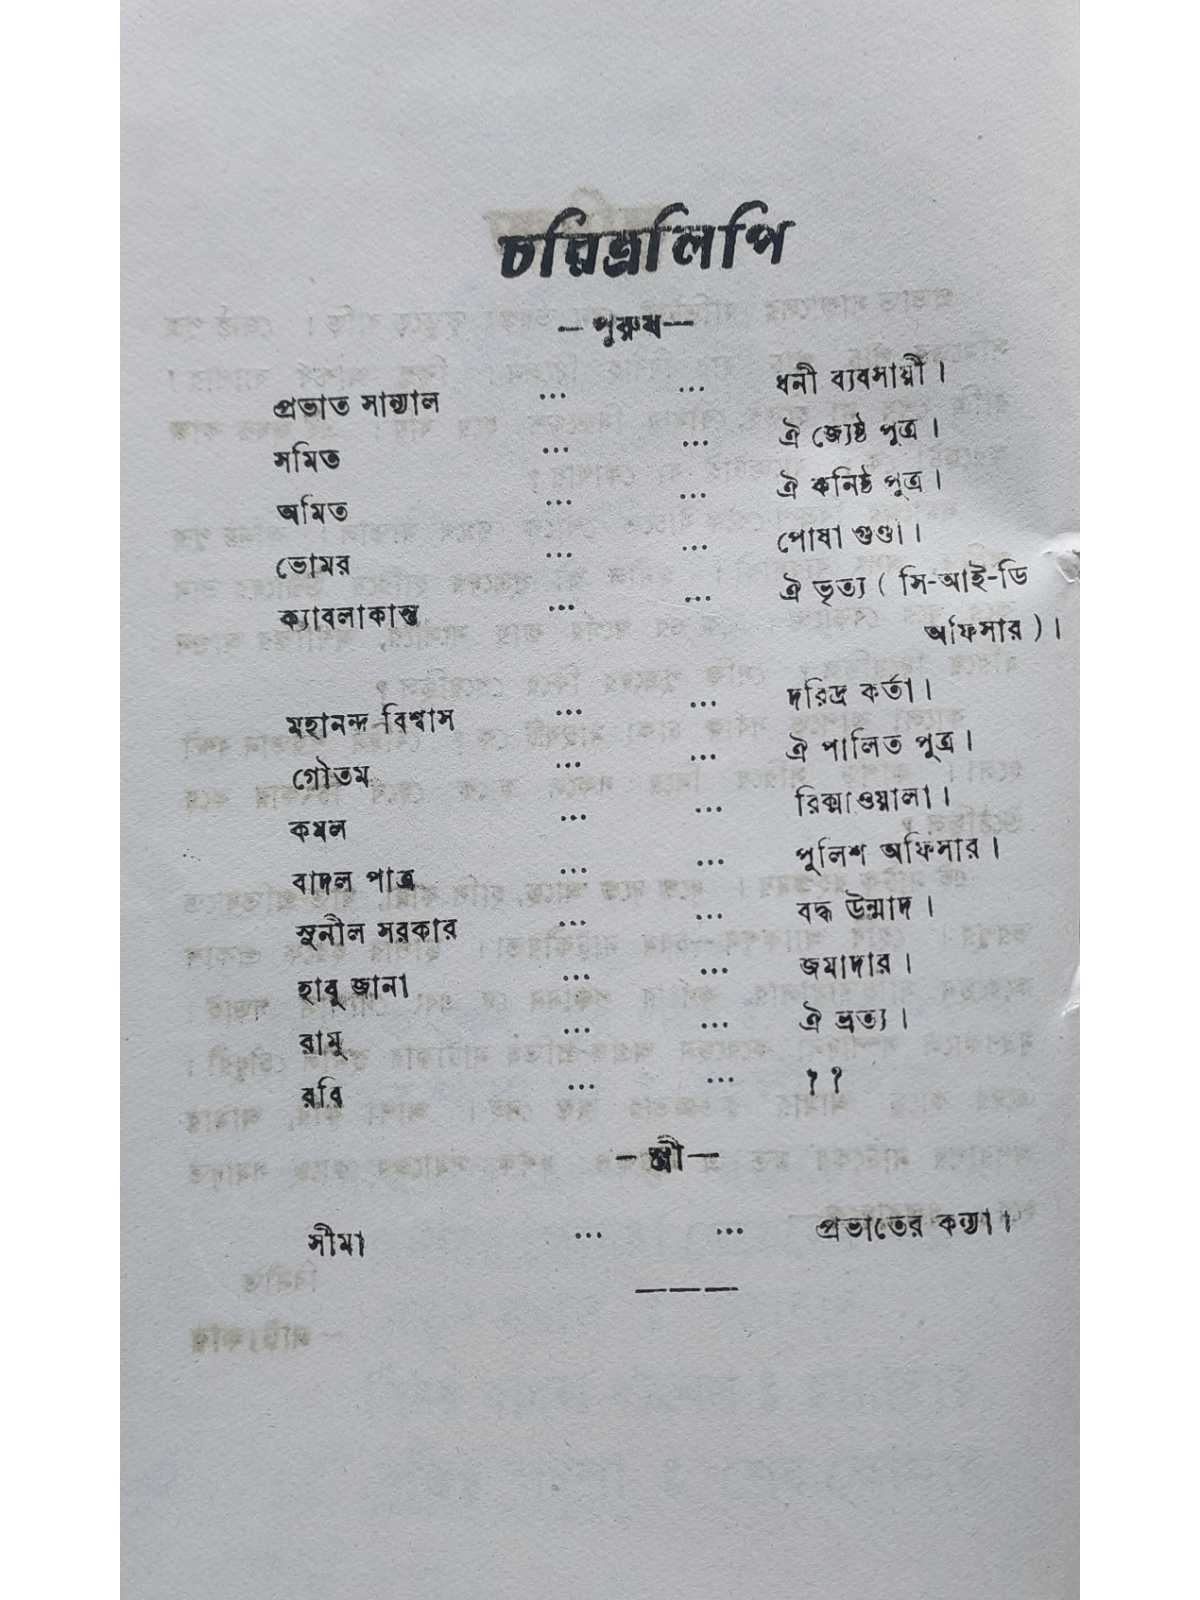 চরিত্রলিপি
—পুরুষ—
প্রভাত সান্যাল ... ... ধনী ব্যবসায়ী।
সমিত ... ... ঐ জ্যেষ্ঠ পুত্র।
অমিত ... ... ঐ কনিষ্ঠ পুত্র।
ভোমর ... ... পোষা গুণ্ডা।
ক্যাবলাকান্ত ... ... ঐ ভৃত্য ( সি-আই-ডি
অফিসার )।
মহানন্দ বিশ্বাস ... ... দরিদ্র কর্তা।
গৌতম ... ... ঐ পালিত পুত্র।
কমল ... ... রিক্সাওয়ালা।
বাদল পাত্র ... ... পুলিশ অফিসার।
সুনীল সরকার ... ... বদ্ধ উন্মাদ।
হাবু জানা ... ... জমাদার।
রামু ... ... ঐ ভৃত্য।
রবি ... ... ? ?
—স্ত্রী—
সীমা ... ... প্রভাতের কন্যা।